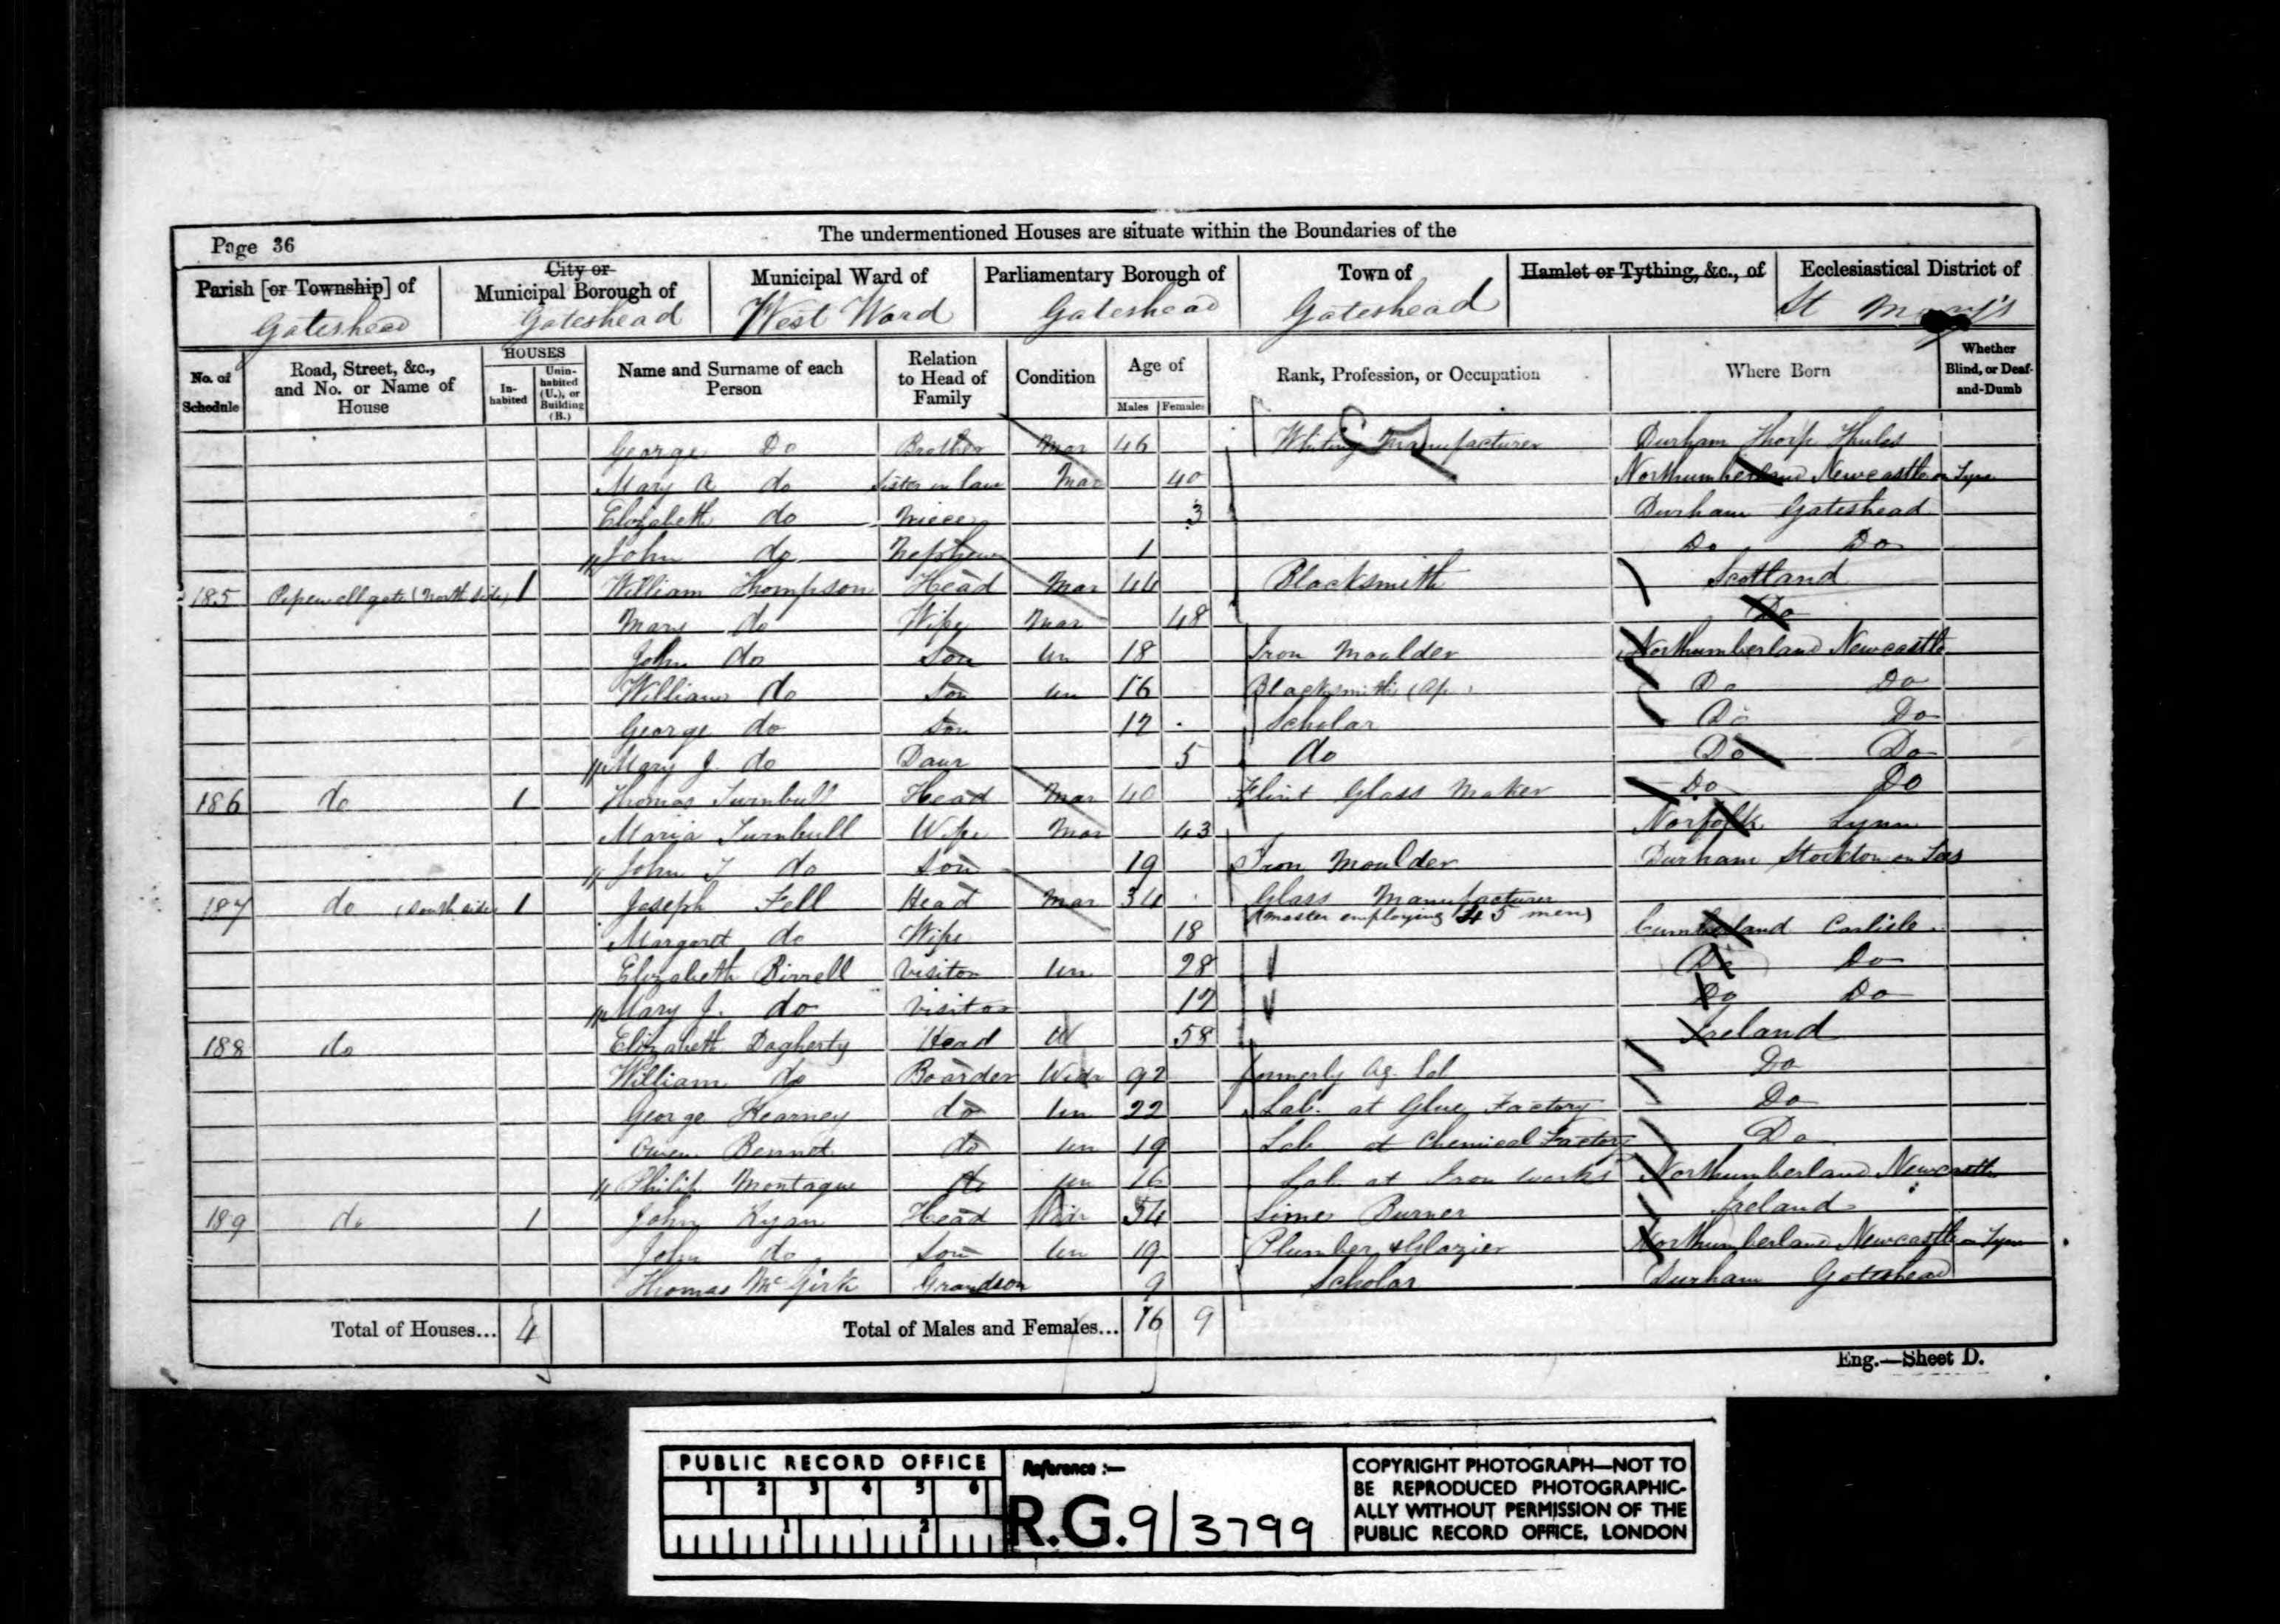 Page 36
The undermentioned Houses are situate within the Boundaries of the
Parish [or Township] of Gateshead
City or Municipal Borough of Gateshead
Municipal Ward of West Ward
Parliamentary Borough of Gateshead
Town of Gateshead
Hamlet or Tything, &c., of
Ecclesiastical District of St Mary's
No. of Schedule
Road, Street, &c., and No. or Name of House
HOUSES
In-habited
Unin-habited (U.), or Building (B.)
Name and Surname of each Person
Relation to Head of Family
Condition
Age of
Males
Females
Rank, Profession, or Occupation
Where Born
Whether Blind, or Deaf-and-Dumb
George Do Brother Mar 46 Whiting Manufacturer Durham Thorp
Mary A do Sister in law Mar 40 Northumberland Newcastle on Tyne
Elizabeth do Niece 3 Durham Gateshead
John do Nephew 1 Do Do
185 Pipewellgate (North side) 1 William Thompson Head Mar 44 Blacksmith Scotland
Mary do Wife Mar 48 Do
John do Son Un 18 Iron Moulder Northumberland Newcastle
William do Son Un 16 Blacksmith (Ap. Do Do
George do Son 12 Scholar Do Do
Mary J. do Daur 5 do Do Do
186 do 1 Thomas Turnbull Head Mar 40 Flint Glass Maker Do Do
Maria Turnbull Wife Mar 43 Norfolk Lynn
John T do Son 19 Iron Moulder Durham Stockton on Tees
187 do (South side 1 Joseph Fell Head Mar 34 Glass Manufacturer
(master employing 45 men)
Margaret do Wife 18 Cumberland Carlisle
Elizabeth Birrell Visitor Un 28 Do Do
Mary J. do Visitor 12 Do Do
188 do Elizabeth Dogherty Head W 58 Ireland
William do Boarder Widr 92 formerly Ag. Lab Do
George Kearney do Un 22 Lab. at Glue Factory Do
Owen Bennet do Un 19 Lab at Chemical Factory Do
Philip Montague do Un 16 Lab at Iron works Northumberland Newcastle
189 do 1 John Ryan Head Widr 54 Lime Burner Ireland
John do Son Un 19 Plumber & Glazier Northumberland Newcastle on Tyne
Thomas McGirk Grandson 9 Scholar Durham Gateshead
Total of Houses... 4 Total of Males and Females... 16 9
Eng.—Sheet D.
PUBLIC RECORD OFFICE
1 2 3 4 5 6
1 2
Reference :—
R.G. 9/3799
COPYRIGHT PHOTOGRAPH—NOT TO
BE REPRODUCED PHOTOGRAPHIC-
ALLY WITHOUT PERMISSION OF THE
PUBLIC RECORD OFFICE, LONDON